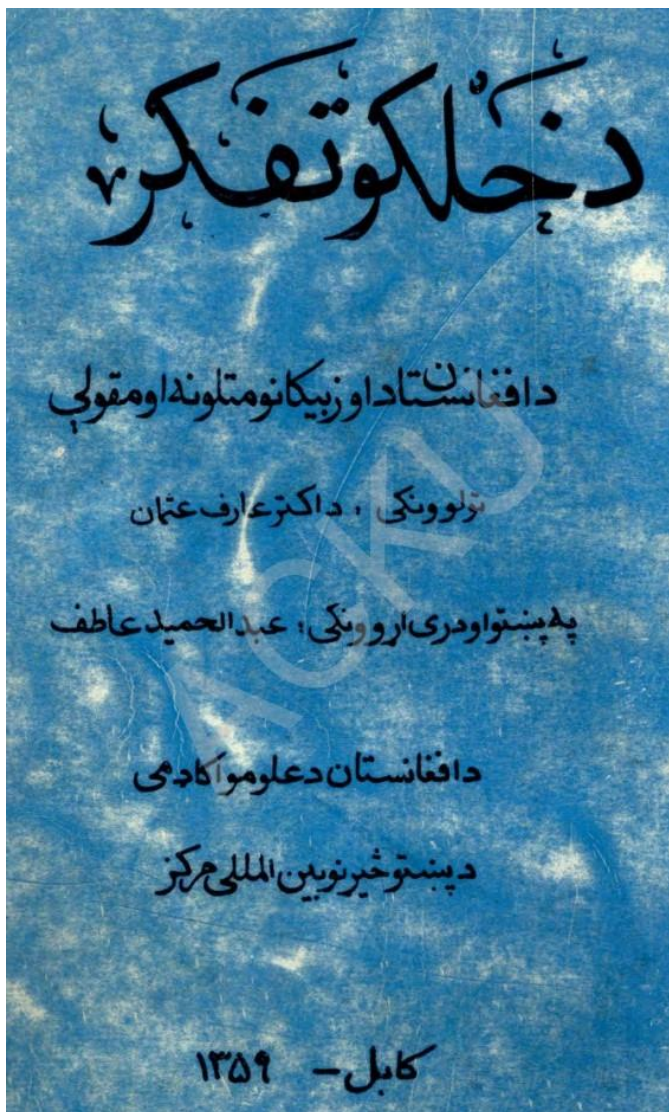 د خلکو تفکر
د افغانستان د اوزبیکانو متلونه او مقولې
ټولوونکی : داکتر عارف عثمان
په پښتو او دری اړوونکی : عبدالحمید عاطف
د افغانستان د علومو اکادمی
د پښتو څېړنو بین المللی مرکز
کابل – ۱۳۵۹
ACKU